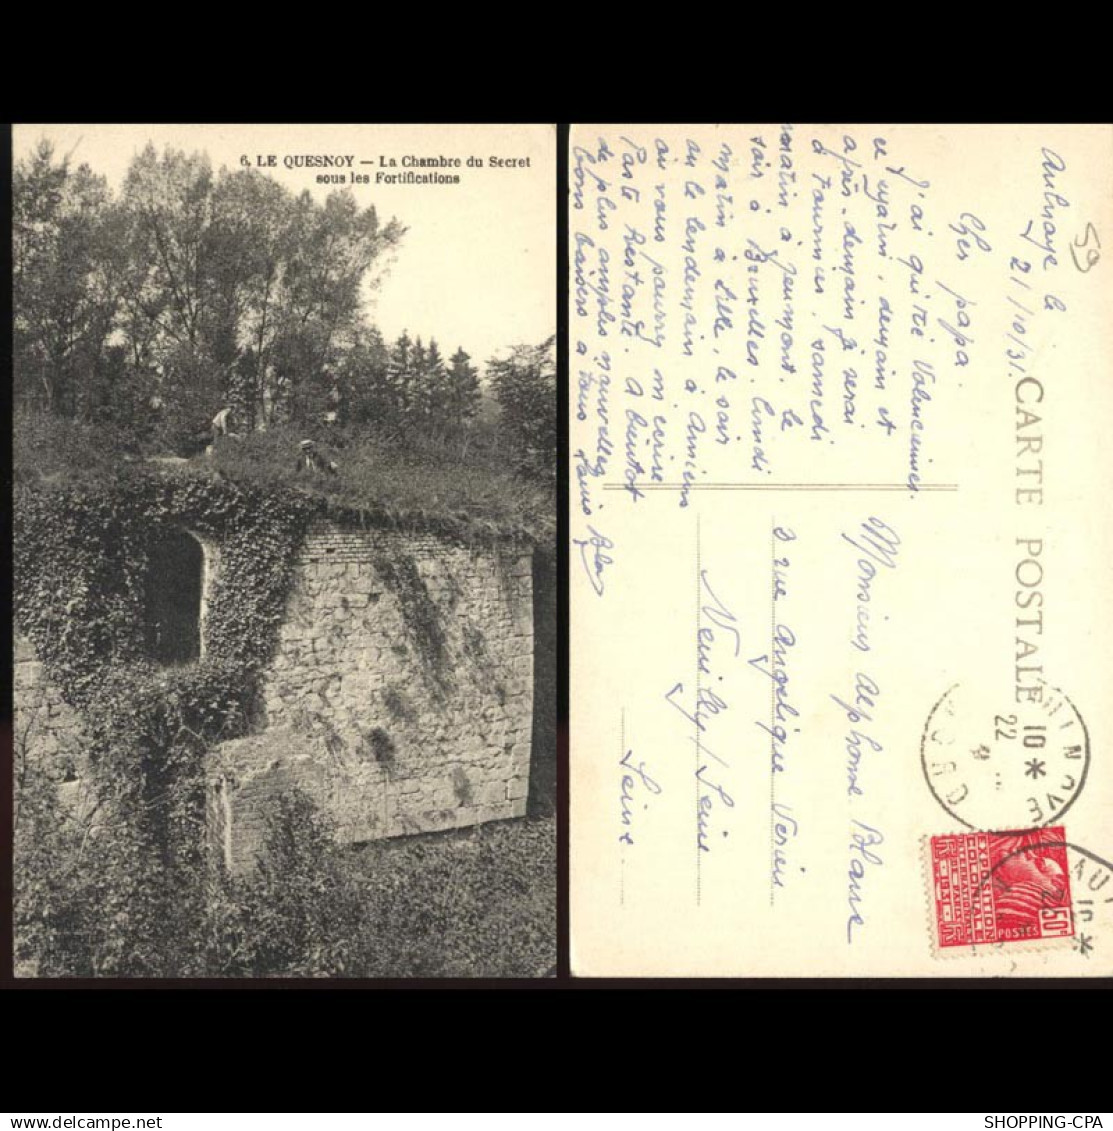 6. LE QUESNOY — La Chambre du Secret
sous les Fortifications
59
Aulnoye le
21/10/31.
Cher papa.
J'ai quitté Valenciennes
ce matin, demain et
après-demain je serai
à Fourmies, samedi
matin à Jeumont. le
soir à Bruxelles. lundi
matin à Lille, le soir
ou le lendemain à Amiens
où vous pourrez m'écrire
Poste Restante. A bientôt
de plus amples nouvelles
bons baisers à tous
CARTE POSTALE
Monsieur Alphonse Blanc
3 rue Angélique Verien
Neuilly/Seine
Seine.
NORD
10 *
22
EXPOSITION
COLONIALE
INTERNATIONALE
PARIS
1931
POSTES
50c
10 *
SHOPPING-CPA